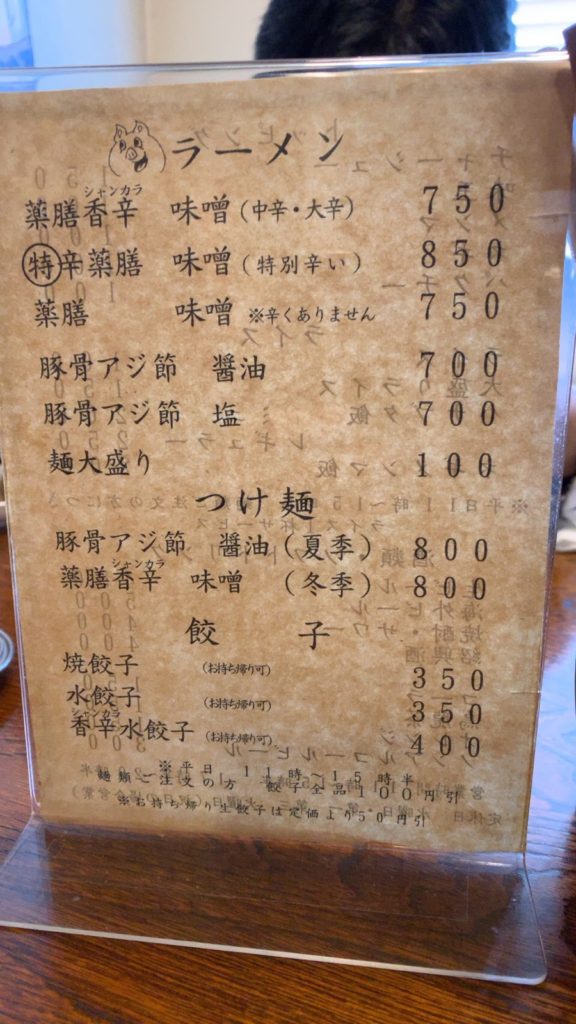 ラーメン
シャンカラ
薬膳香辛 味噌(中辛・大辛) 750
特辛薬膳 味噌(特別辛い) 850
薬膳 味噌 ※辛くありません 750
豚骨アジ節 醤油 700
豚骨アジ節 塩 700
麺大盛り 100
つけ麺
豚骨アジ節 醤油(夏季) 800
シャンカラ
薬膳香辛 味噌(冬季) 800
餃子
焼餃子 (お持ち帰り可) 350
水餃子 (お持ち帰り可) 350
シャンカラ
香辛水餃子 (お持ち帰り可) 400
※平日 11時~15時半
麺類ご注文の方 餃子全品100円引
※お持ち帰り生餃子は定価より50円引